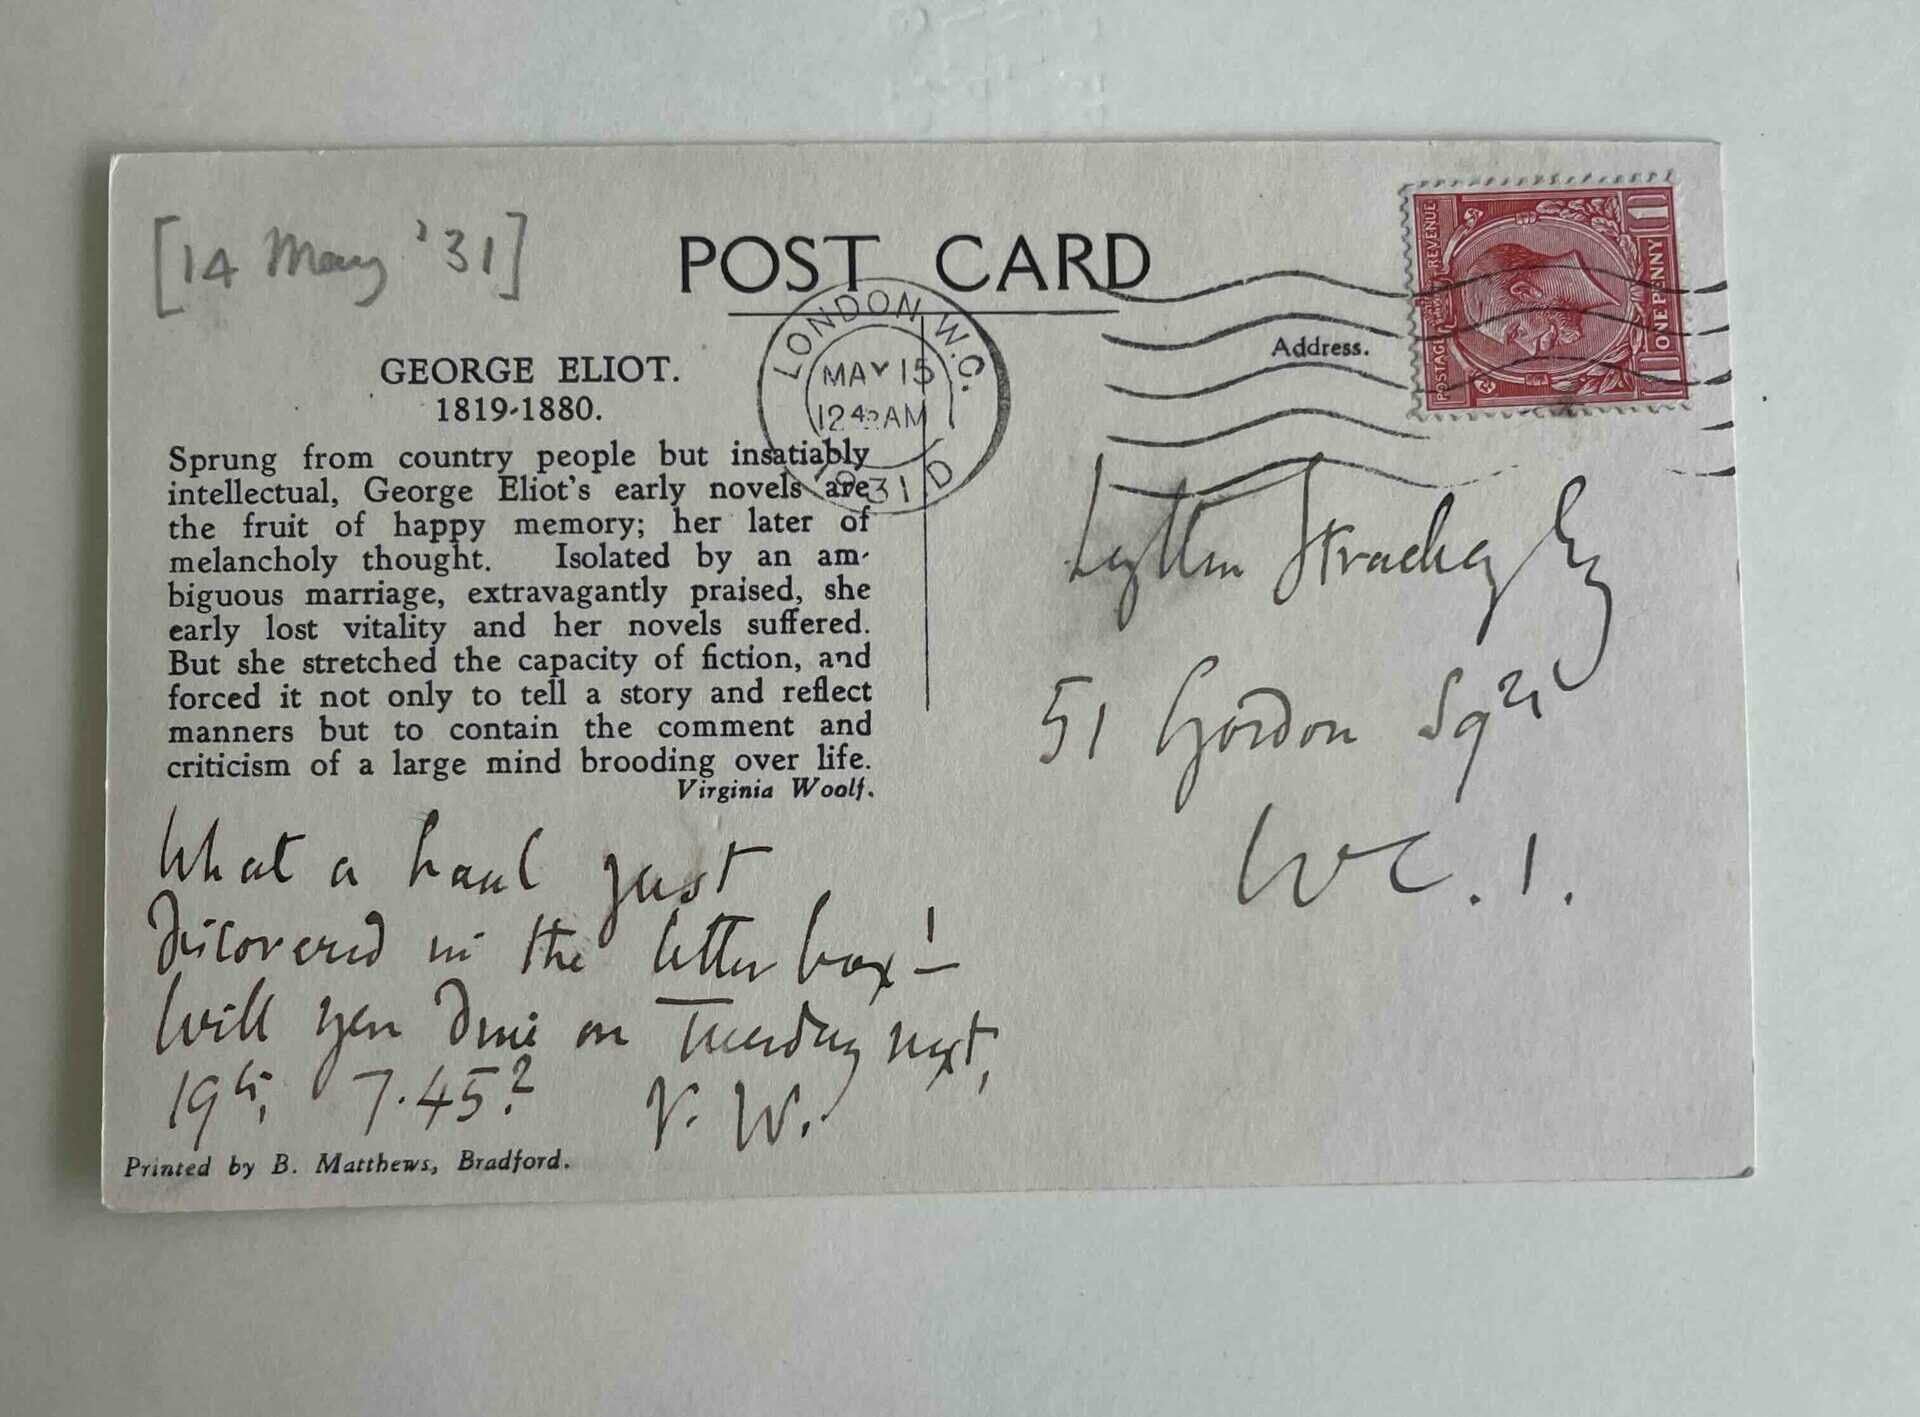 [14 May '31]
POST CARD
LONDON. W.C.
MAY 15
12 45 AM
1931 D
POSTAGE REVENUE
ONE PENNY
1
Address.
GEORGE ELIOT.
1819-1880.
Sprung from country people but insatiably
intellectual, George Eliot's early novels are
the fruit of happy memory; her later of
melancholy thought. Isolated by an am-
biguous marriage, extravagantly praised, she
early lost vitality and her novels suffered.
But she stretched the capacity of fiction, and
forced it not only to tell a story and reflect
manners but to contain the comment and
criticism of a large mind brooding over life.
Virginia Woolf.
What a haul just
discovered in the letter box!—
Will you dine on Tuesday next,
19th, 7.45? V. W.
Printed by B. Matthews, Bradford.
Lytton Strachey Esq
51 Gordon Sqre
WC. 1.